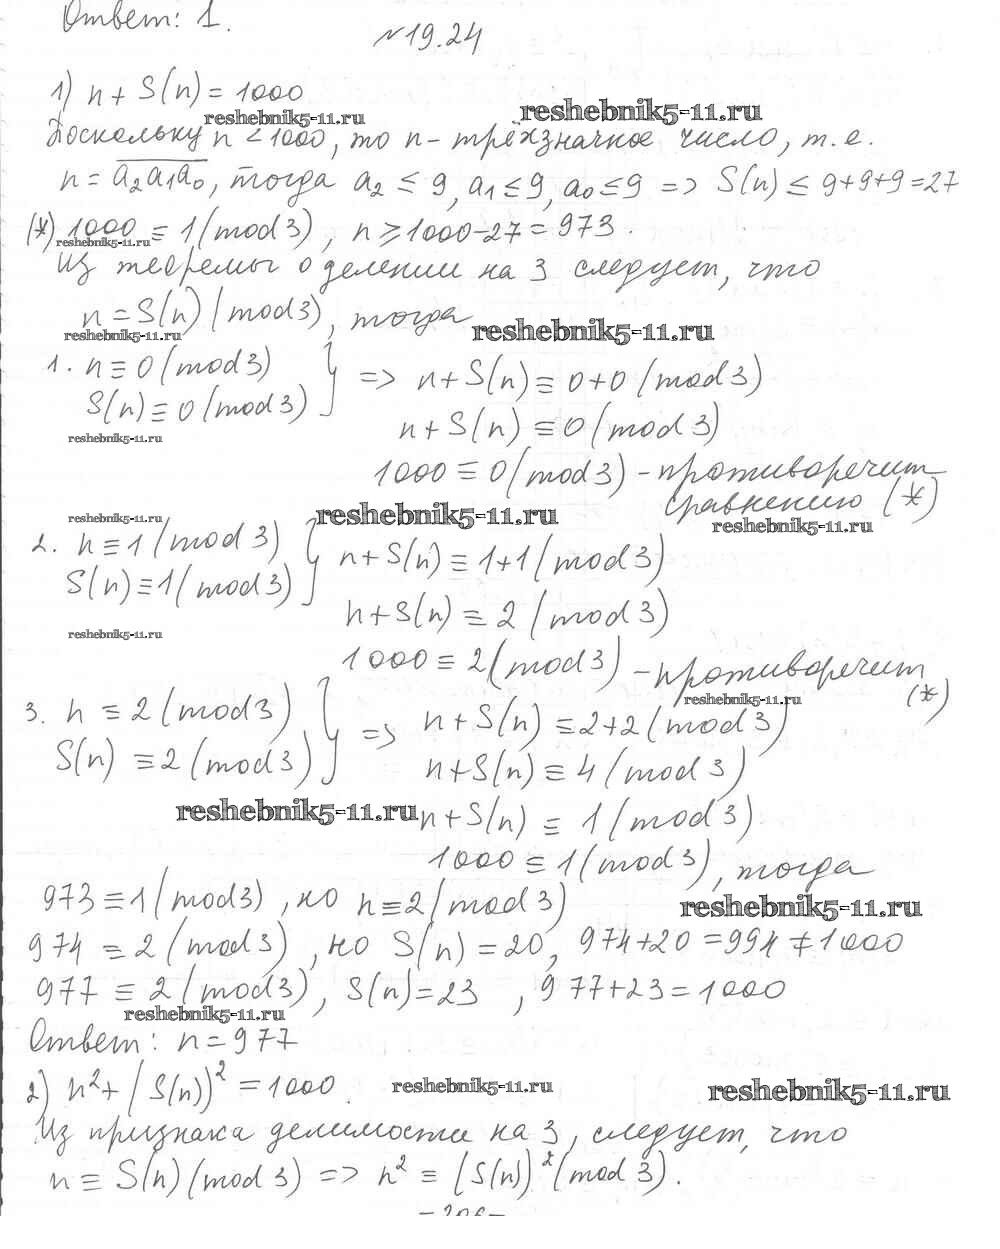 Ответ: 1.
№19.24
1) n + S(n) = 1000
reshebnik5-11.ru
reshebnik5-11.ru
Поскольку n < 1000, то n - трёхзначное число, т.е.
n = a₂a₁a₀, тогда a₂ ≤ 9, a₁ ≤ 9, a₀ ≤ 9 => S(n) ≤ 9+9+9=27
(*) 1000 ≡ 1 (mod 3), n ⩾ 1000-27 = 973.
reshebnik5-11.ru
Из теоремы о делении на 3 следует, что
n = S(n) (mod 3), тогда
reshebnik5-11.ru
reshebnik5-11.ru
1. n ≡ 0 (mod 3)
S(n) ≡ 0 (mod 3) } => n + S(n) ≡ 0+0 (mod 3)
reshebnik5-11.ru
n + S(n) ≡ 0 (mod 3)
1000 ≡ 0 (mod 3) - противоречит
сравнению (*)
reshebnik5-11.ru
reshebnik5-11.ru
reshebnik5-11.ru
2. n ≡ 1 (mod 3)
S(n) ≡ 1 (mod 3) } n + S(n) ≡ 1+1 (mod 3)
n + S(n) ≡ 2 (mod 3)
reshebnik5-11.ru
1000 ≡ 2 (mod 3) - противоречит
(*)
reshebnik5-11.ru
3. n ≡ 2 (mod 3)
S(n) ≡ 2 (mod 3) } => n + S(n) ≡ 2+2 (mod 3)
n + S(n) ≡ 4 (mod 3)
reshebnik5-11.ru
n + S(n) ≡ 1 (mod 3)
1000 ≡ 1 (mod 3), тогда
973 ≡ 1 (mod 3), но n ≡ 2 (mod 3)
reshebnik5-11.ru
974 ≡ 2 (mod 3), но S(n) = 20, 974+20 = 994 ≠ 1000
977 ≡ 2 (mod 3), S(n) = 23, 977+23 = 1000
reshebnik5-11.ru
Ответ: n = 977
2) n² + (S(n))² = 1000.
reshebnik5-11.ru
reshebnik5-11.ru
Из признака делимости на 3, следует, что
n ≡ S(n) (mod 3) => n² ≡ (S(n))² (mod 3).